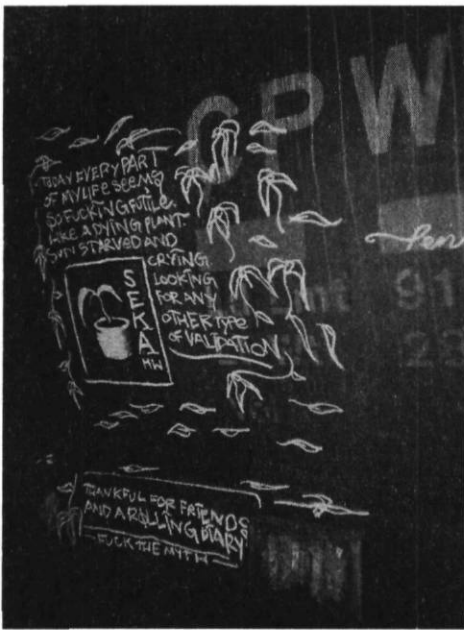 CPW
TODAY EVERY PART
OF MY LIFE SEEMS
SO FUCKING FUTILE.
LIKE A DYING PLANT.
SUN STARVED AND
CRYING.
LOOKING
FOR ANY
OTHER TYPE
OF VALIDATION
SEKA
HW
91
28
THANKFUL FOR FRIENDS
AND A ROLLING DIARY
FUCK THE MYTH